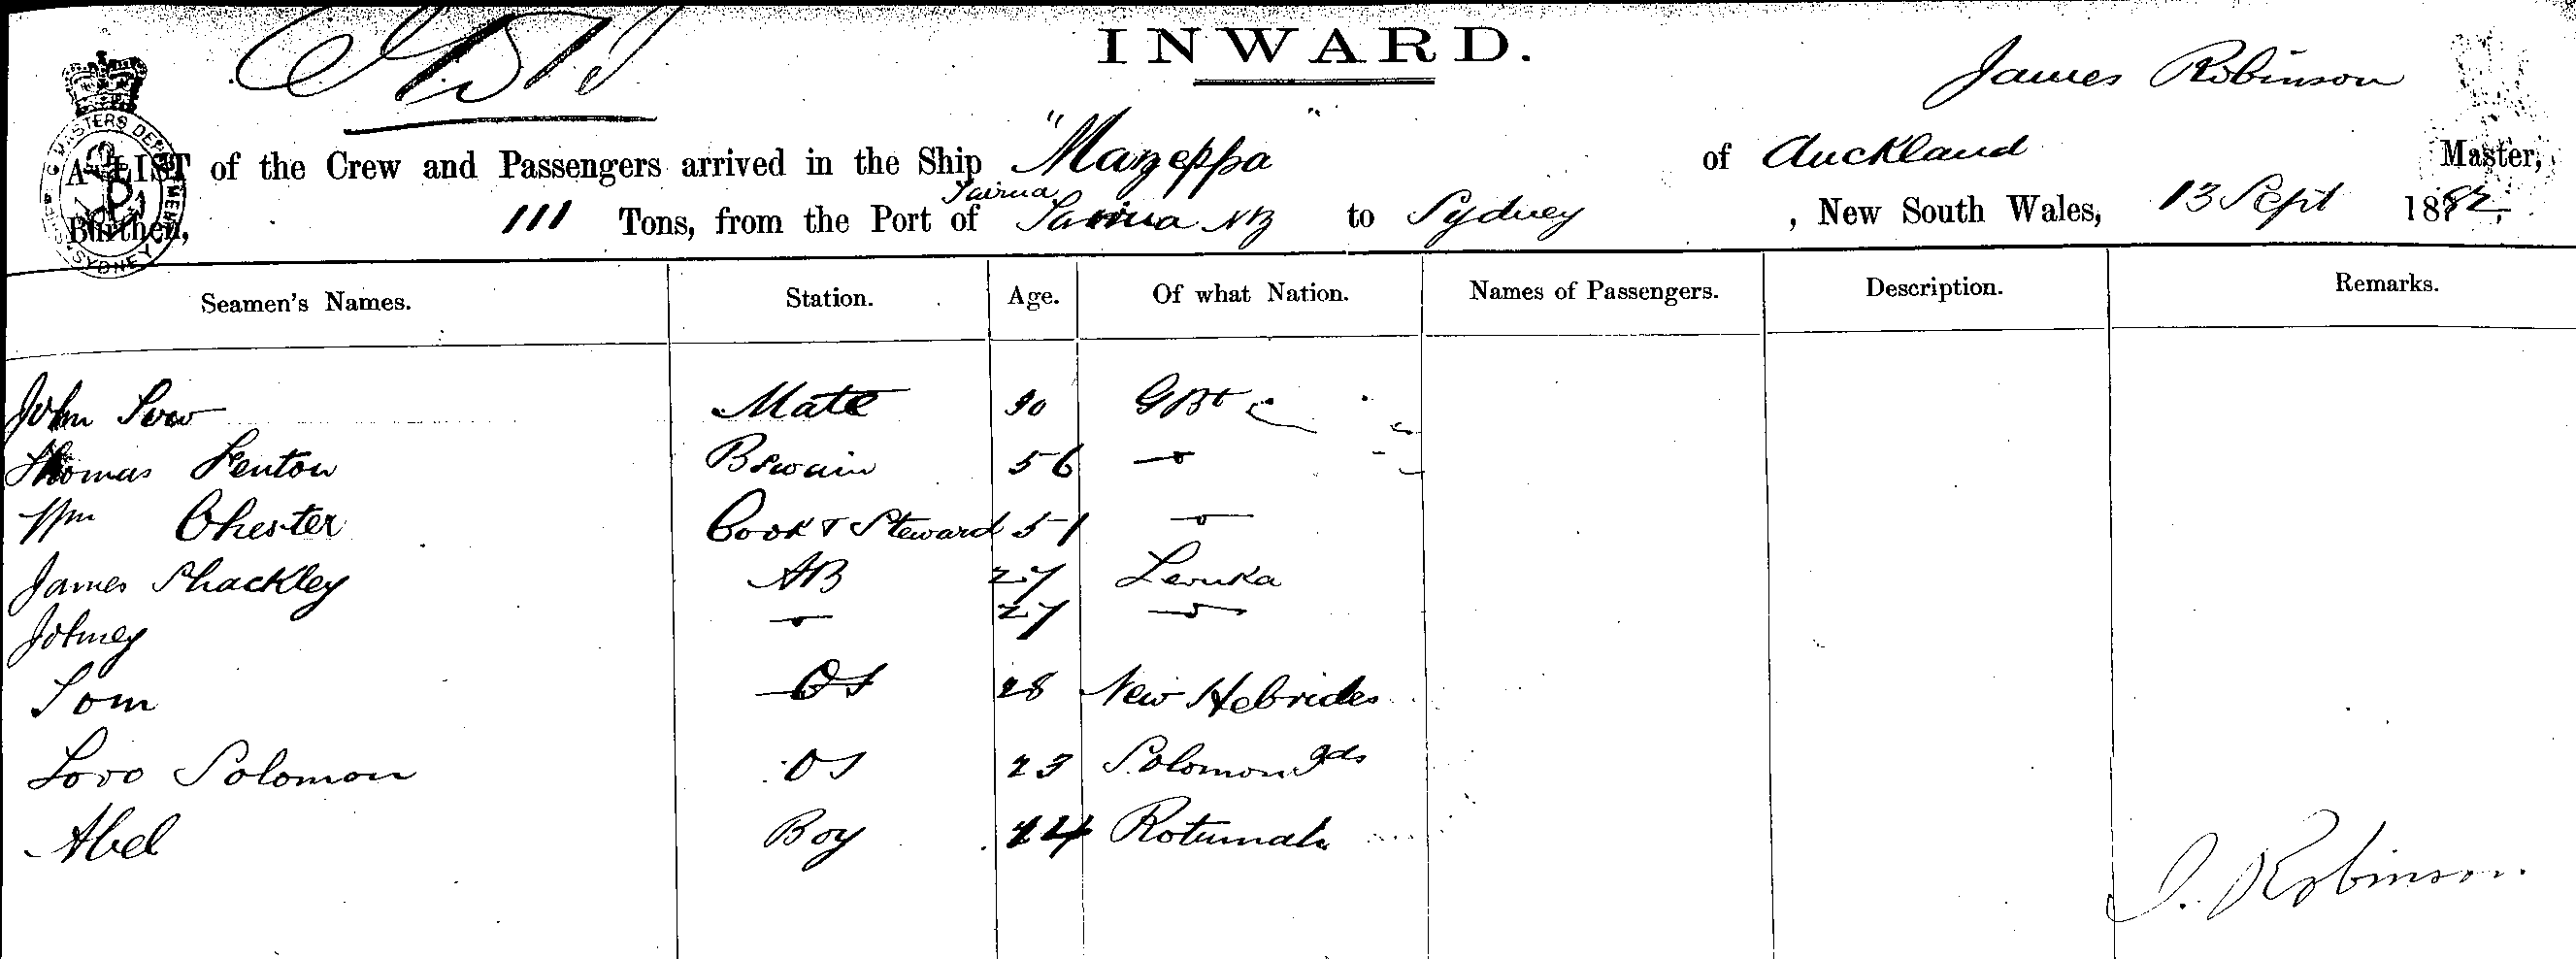 INWARD.
James Robinson
A LIST of the Crew and Passengers arrived in the Ship "Mazeppa" of Auckland Master,
Tairua
Burthen, 111 Tons, from the Port of Tairua NZ to Sydney, New South Wales, 13 Sept 1882,
Seamen's Names. Station. Age. Of what Nation. Names of Passengers. Description. Remarks.
John Mate 30 GBt
Thomas Fenton Bswain 56
Wm Chester Cook & Steward 51
James Shackley AB 27 Levuka
Johney 27
Tom OS 28 New Hebrides
Lovo Solomon OS 23 Solomon Ids
Abel Boy 14 Rotumah
J. Robinson.